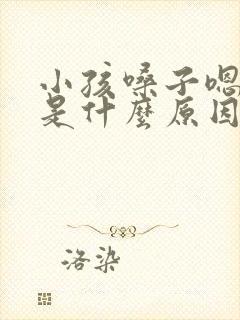 小孩嗓子嗯
是什麽原因
洛染